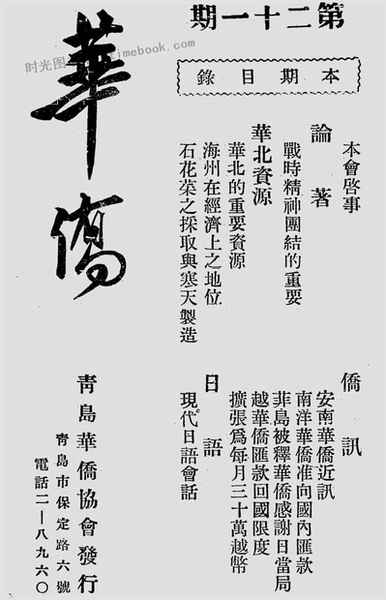 第二十一期
本期目錄
本會啓事
論著
戰時精神團結的重要
華北資源
華北的重要資源
海州在經濟上之地位
石花菜之採取與寒天製造
僑訊
安南華僑近訊
南洋華僑准向國內匯款
菲島被釋華僑感謝日當局
越華僑匯款回國限度
擴張爲每月三十萬越幣
日語
現代日語會話
華僑
青島華僑協會發行
青島市保定路六號
電話二—八九六〇
时光图